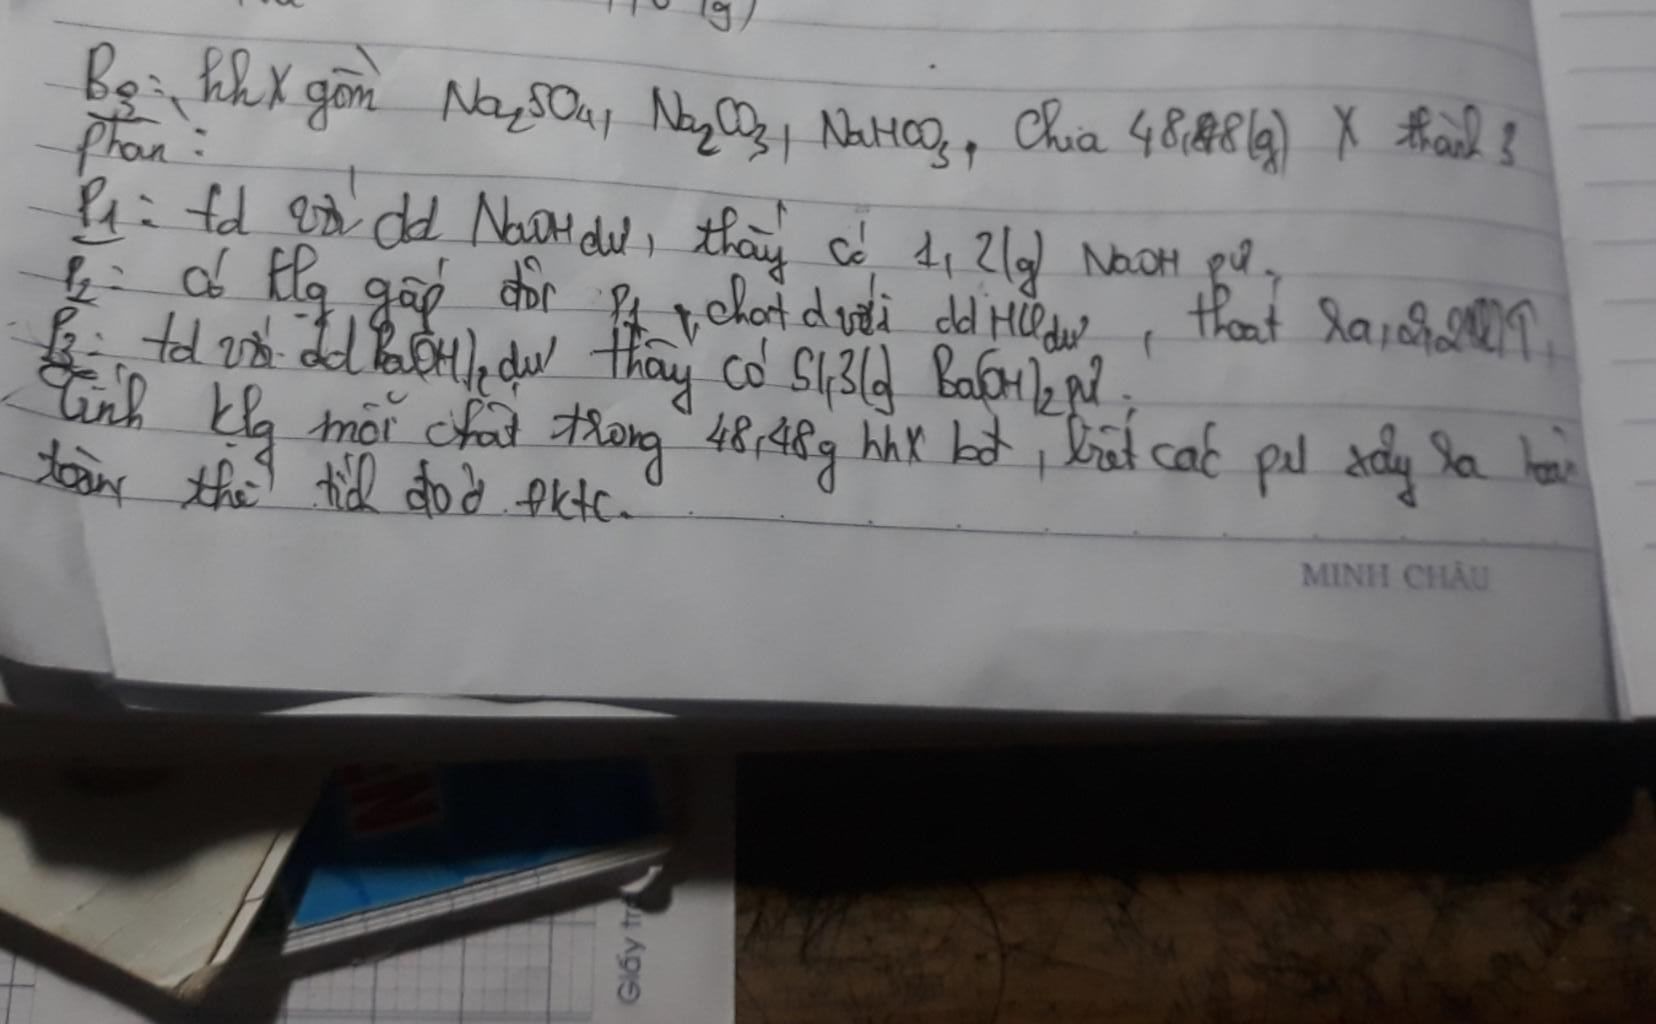 (g)
B3: hh X gồm Na2SO4, Na2CO3, NaHCO3, Chia 48,48(g) X thành 3
phần:
P1: td với dd NaOH dư, thấy có 1,2(g) NaOH pứ.
P2: có klg gấp đôi P1, cho td với dd HCl dư, thoát ra
P3: td với dd Ba(OH)2 dư thấy có 51,3(g) Ba(OH)2 pứ.
Tính klg mỗi chất trong 48,48g hh X bđ, biết các pứ xảy ra hoàn
toàn, thể tích đo ở đktc.
MINH CHÂU
Giấy